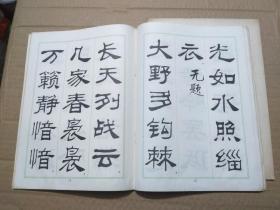 光如水照缁
衣 无题
大野多钩棘
长天列战云
几家春袅袅
万籁静愔愔